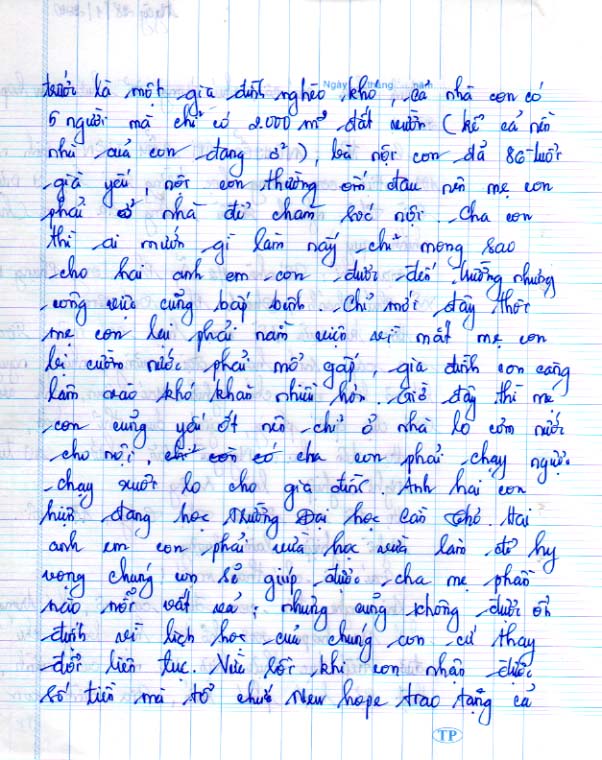 Ngày tháng năm
trước là một gia đình nghèo khó, cả nhà con có
5 người mà chỉ có 2.000 m² đất vườn (kể cả nền
nhà của con đang ở), bà nội con đã 86 tuổi
già yếu, nội con thường ốm đau nên mẹ con
phải ở nhà để chăm sóc nội. Cha con
thì ai mướn gì làm nấy chỉ mong sao
cho hai anh em con được đến trường nhưng
công việc cũng bấp bênh. Chỉ mới đây thôi
mẹ con lại phải nằm viện vì mắt mẹ con
bị cườm nước phải mổ gấp, gia đình con càng
lâm vào khó khăn nhiều hơn. Giờ đây thì mẹ
con cũng yếu ớt nên chỉ ở nhà lo cơm nước
cho nội, chỉ còn có cha con phải chạy ngược
chạy xuôi lo cho gia đình. Anh hai con
hiện đang học trường Đại học Cần Thơ. Hai
anh em con phải vừa học vừa làm để hy
vọng chúng con sẽ giúp được cha mẹ phần
nào nổi vất vả, nhưng cũng không được ổn
định vì lịch học của chúng con cứ thay
đổi liên tục. khi con nhận được
số tiền mà tổ chức New hope trao tặng cả
TP